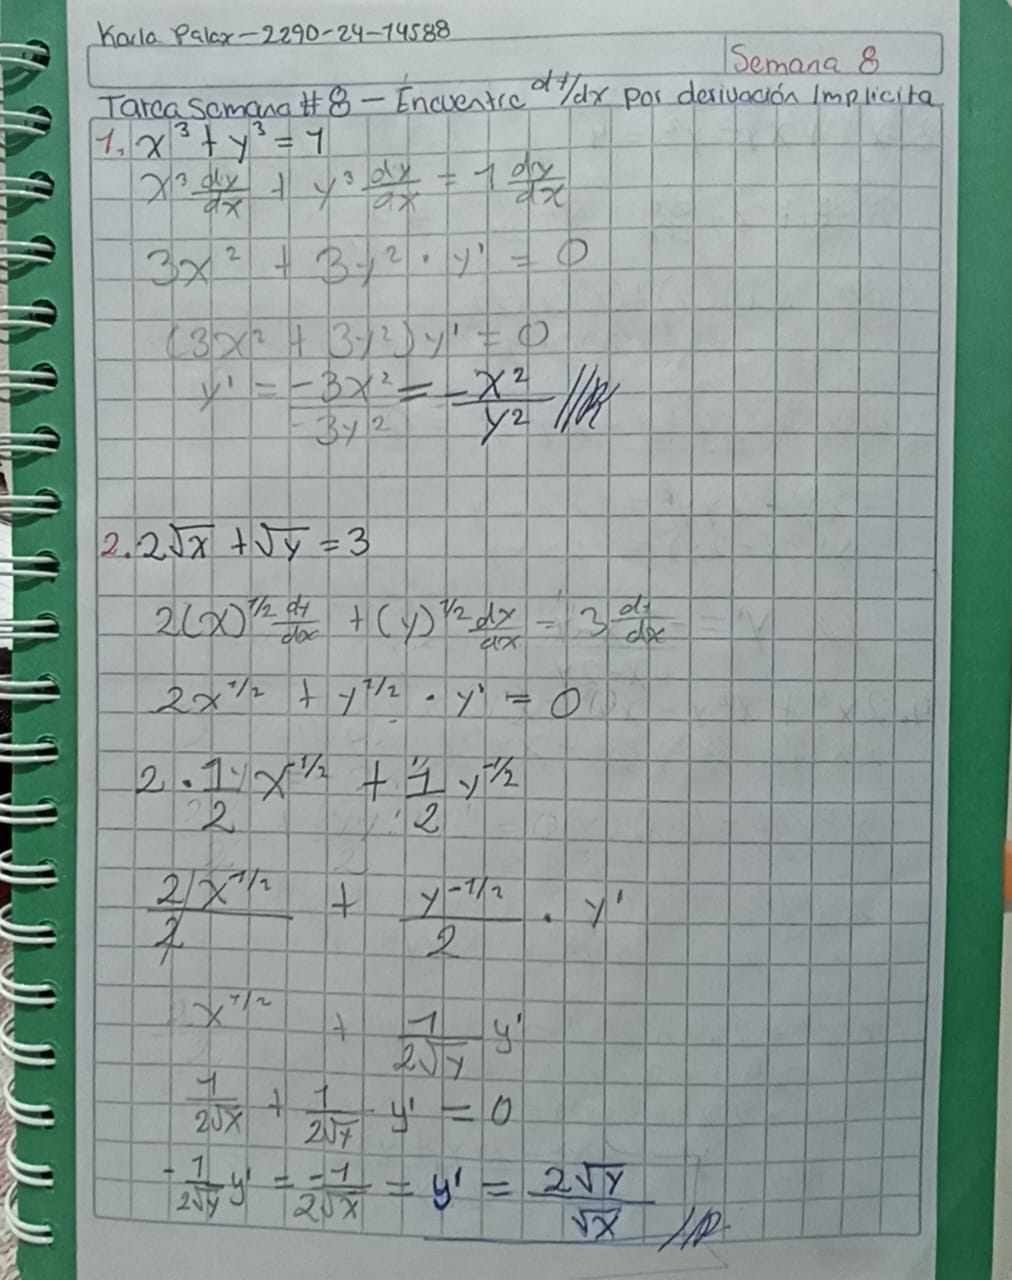 Karla Palax-2290-24-14588
Semana 8
Tarea Semana #8 - Encuentre dy/dx por derivación Implicita
1. x³ + y³ = 1
x³ dy/dx + y³ dy/dx = 1 dy/dx
3x² + 3y² · y' = 0
(3x² + 3y²) y' = 0
y' = -3x²/3y² = -x²/y² //R
2. 2√x + √y = 3
2(x)^1/2 dy/dx + (y)^1/2 dy/dx = 3 dy/dx
2x^1/2 + y^1/2 · y' = 0
2 · 1/2 x^-1/2 + 1/2 y^-1/2
2x^-1/2/2 + y^-1/2/2 · y'
x^1/2 + 1/2√y y'
1/2√x + 1/2√y y' = 0
-1/2√y y' = -1/2√x = y' = 2√y/√x //R